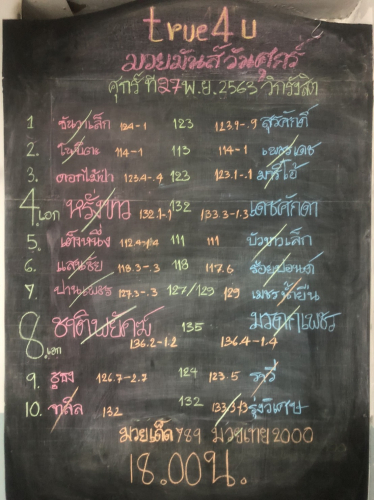 true4u
มวยมันส์วันศุกร์
ศุกร์ ที่ 27 พ.ย. 2563 วิกรังสิต
1. ธันวาเล็ก 124-1 123 123.9-.9 สุรศักดิ์
2. 114-1 113 114-1 เพชรเดช
3. ดอกไม้ป่า 123.4-.4 123 123.1-.1 มารีโอ้
4.เอก หรั่งขาว 132.1-.1 132 133.3-1.3 เดชศักดา
5. เต็งหนึ่ง 111 111 บัวขาวเล็ก
6. แสนชัย 118.3-.3 118 117.6
7. ปานเพชร 127.3-.3 127/129 129 เพชรน้ำยืน
8.เอก ชาติพยัคฆ์ 136.2-1.2 135 136.4-1.4 มรดกเพชร
9. 126.7-2.7 124 123.5
10. 132 132 รุ่งวิเศษ
มวยเด็ก 789 มวยไทย 2000
18.00น.